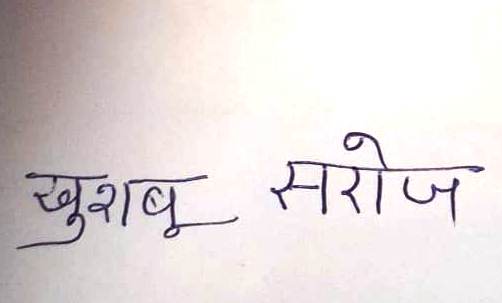 खुशबू सरोज